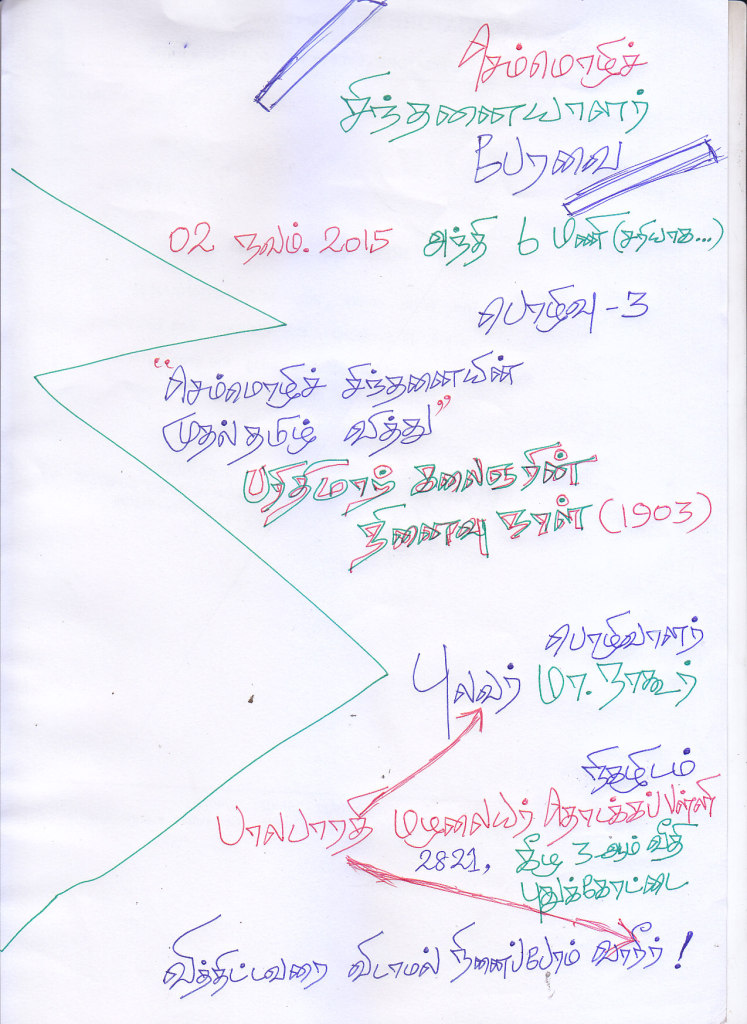 செம்மொழிச்
சிந்தனையாளர்
பேரவை
02 நவம். 2015 அந்தி 6 மணி (சரியாக...)
பொழிவு - 3
"செம்மொழிச் சிந்தனையின்
முதல் தமிழ் வித்து"
பரிதிமாற் கலைஞரின்
நினைவு நாள் (1903)
பொழிவாளர்
புலவர் மா. நாகூர்
நிகழிடம்
பாலபாரதி மழலையர் தொடக்கப்பள்ளி
2821, கீழ 3-ஆம் வீதி
புதுக்கோட்டை
வித்திட்டவரை விடாமல் நினைப்போம் வாரீர் !